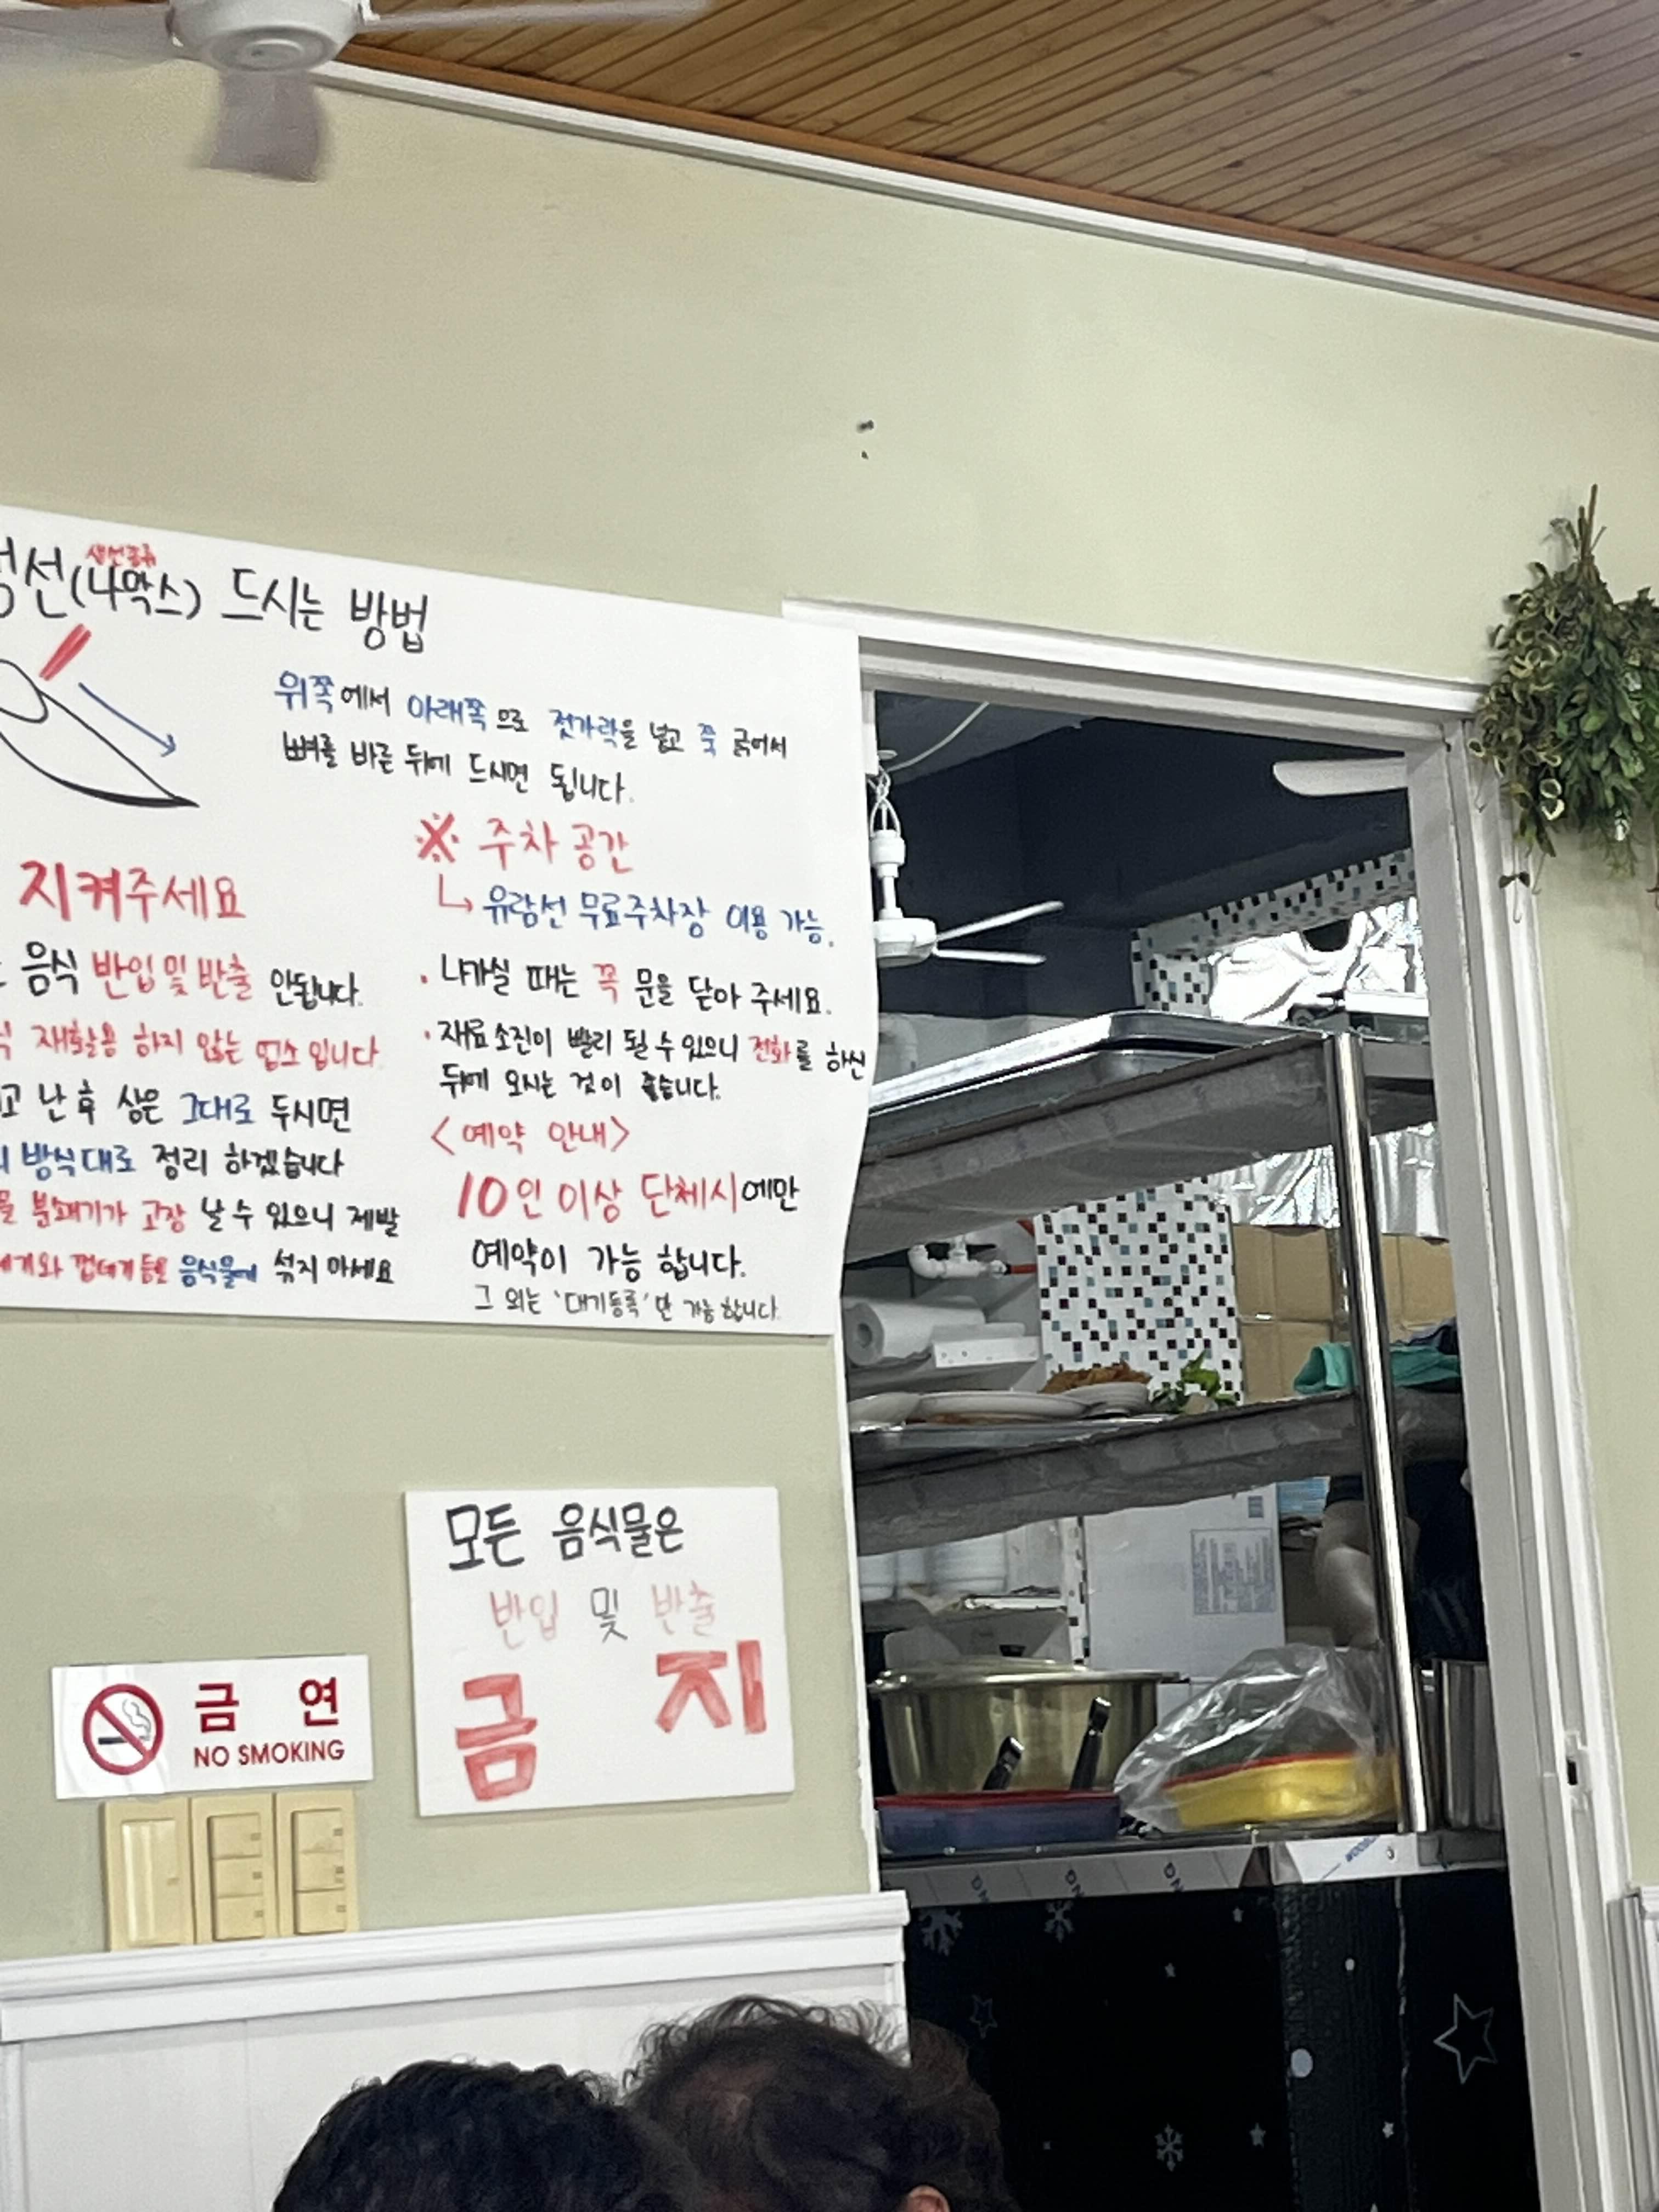 생선(나막스) 드시는 방법
생선종류
위쪽에서 아래쪽으로 젓가락을 넣고 쭉 긁어서
뼈를 바른 뒤에 드시면 됩니다.
지켜주세요
음식 반입 및 반출 안됩니다.
재활용 하지 않는 업소 입니다
난 후 상은 그대로 두시면
방식대로 정리 하겠습니다
분쇄기가 고장 날 수 있으니 제발
껍데기등을 음식물에 섞지 마세요
※ 주차 공간
유람선 무료주차장 이용 가능.
· 나가실 때는 꼭 문을 닫아 주세요.
· 재료소진이 빨리 될 수 있으니 전화를 하신
뒤에 오시는 것이 좋습니다.
<예약 안내>
10인 이상 단체시에만
예약이 가능 합니다.
그 외는 '대기등록'만 가능 합니다.
모든 음식물은
반입 및 반출
금지
금연
NO SMOKING